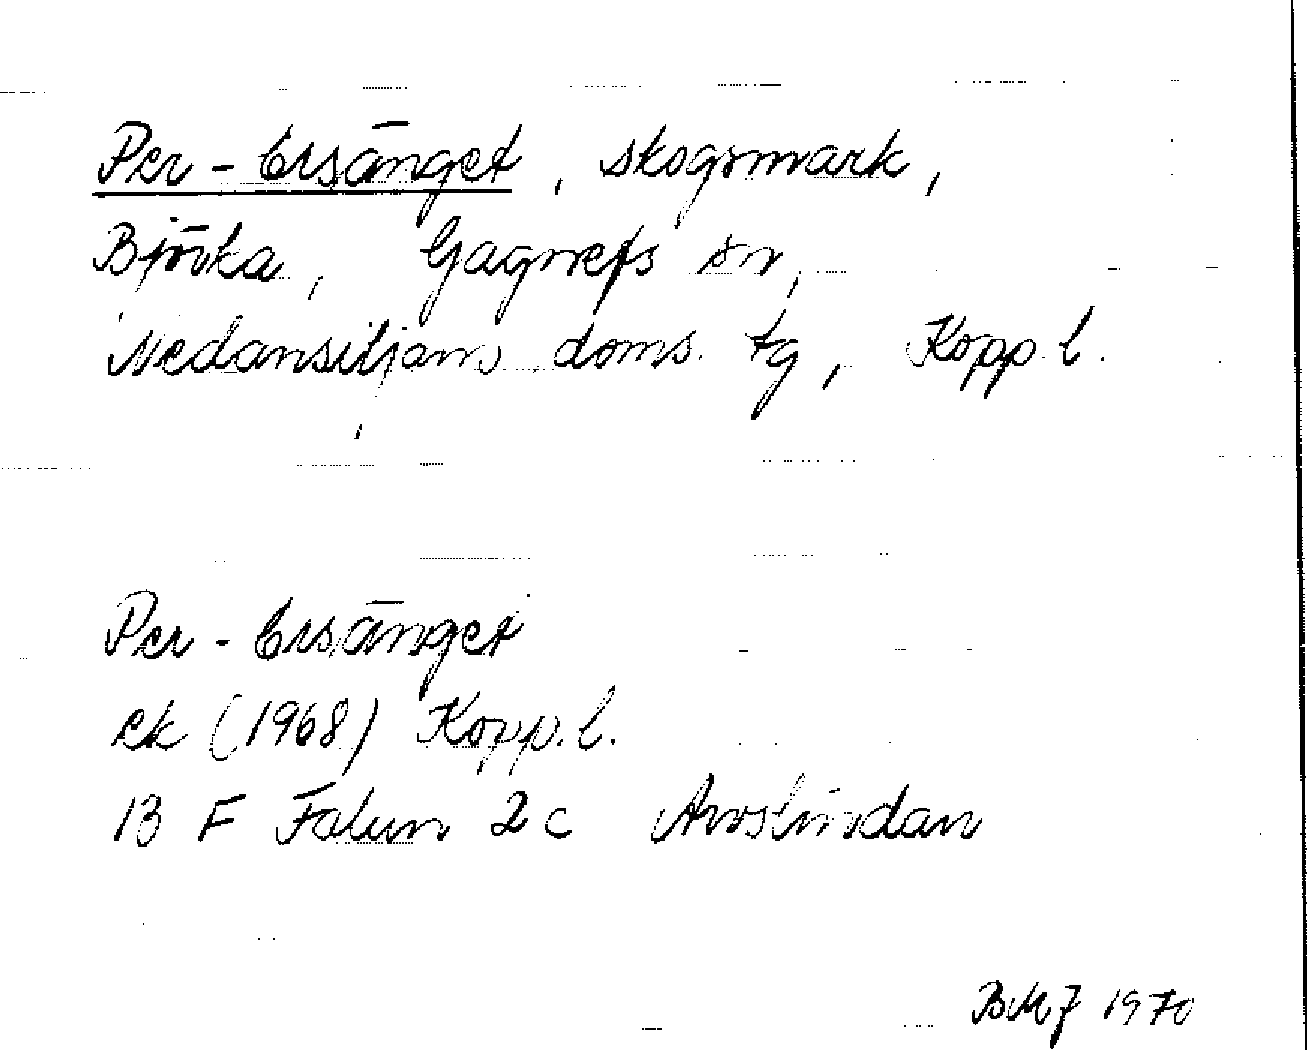 Per-Ersänget, skogsmark,
Björka, Gagnefs sn,
Nedansiljans doms. tg, Kopp. l.
Per-Ersänget
ek (1968) Kopp. l.
13 F Falun 2 c Arvslindan
BMJ 1970